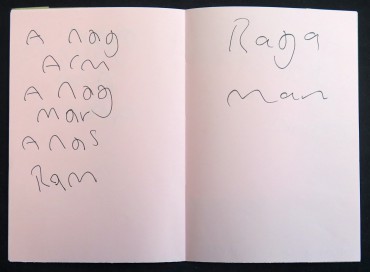 A nag
Arm
A nag
mar
Anas
Ram
Raga
man